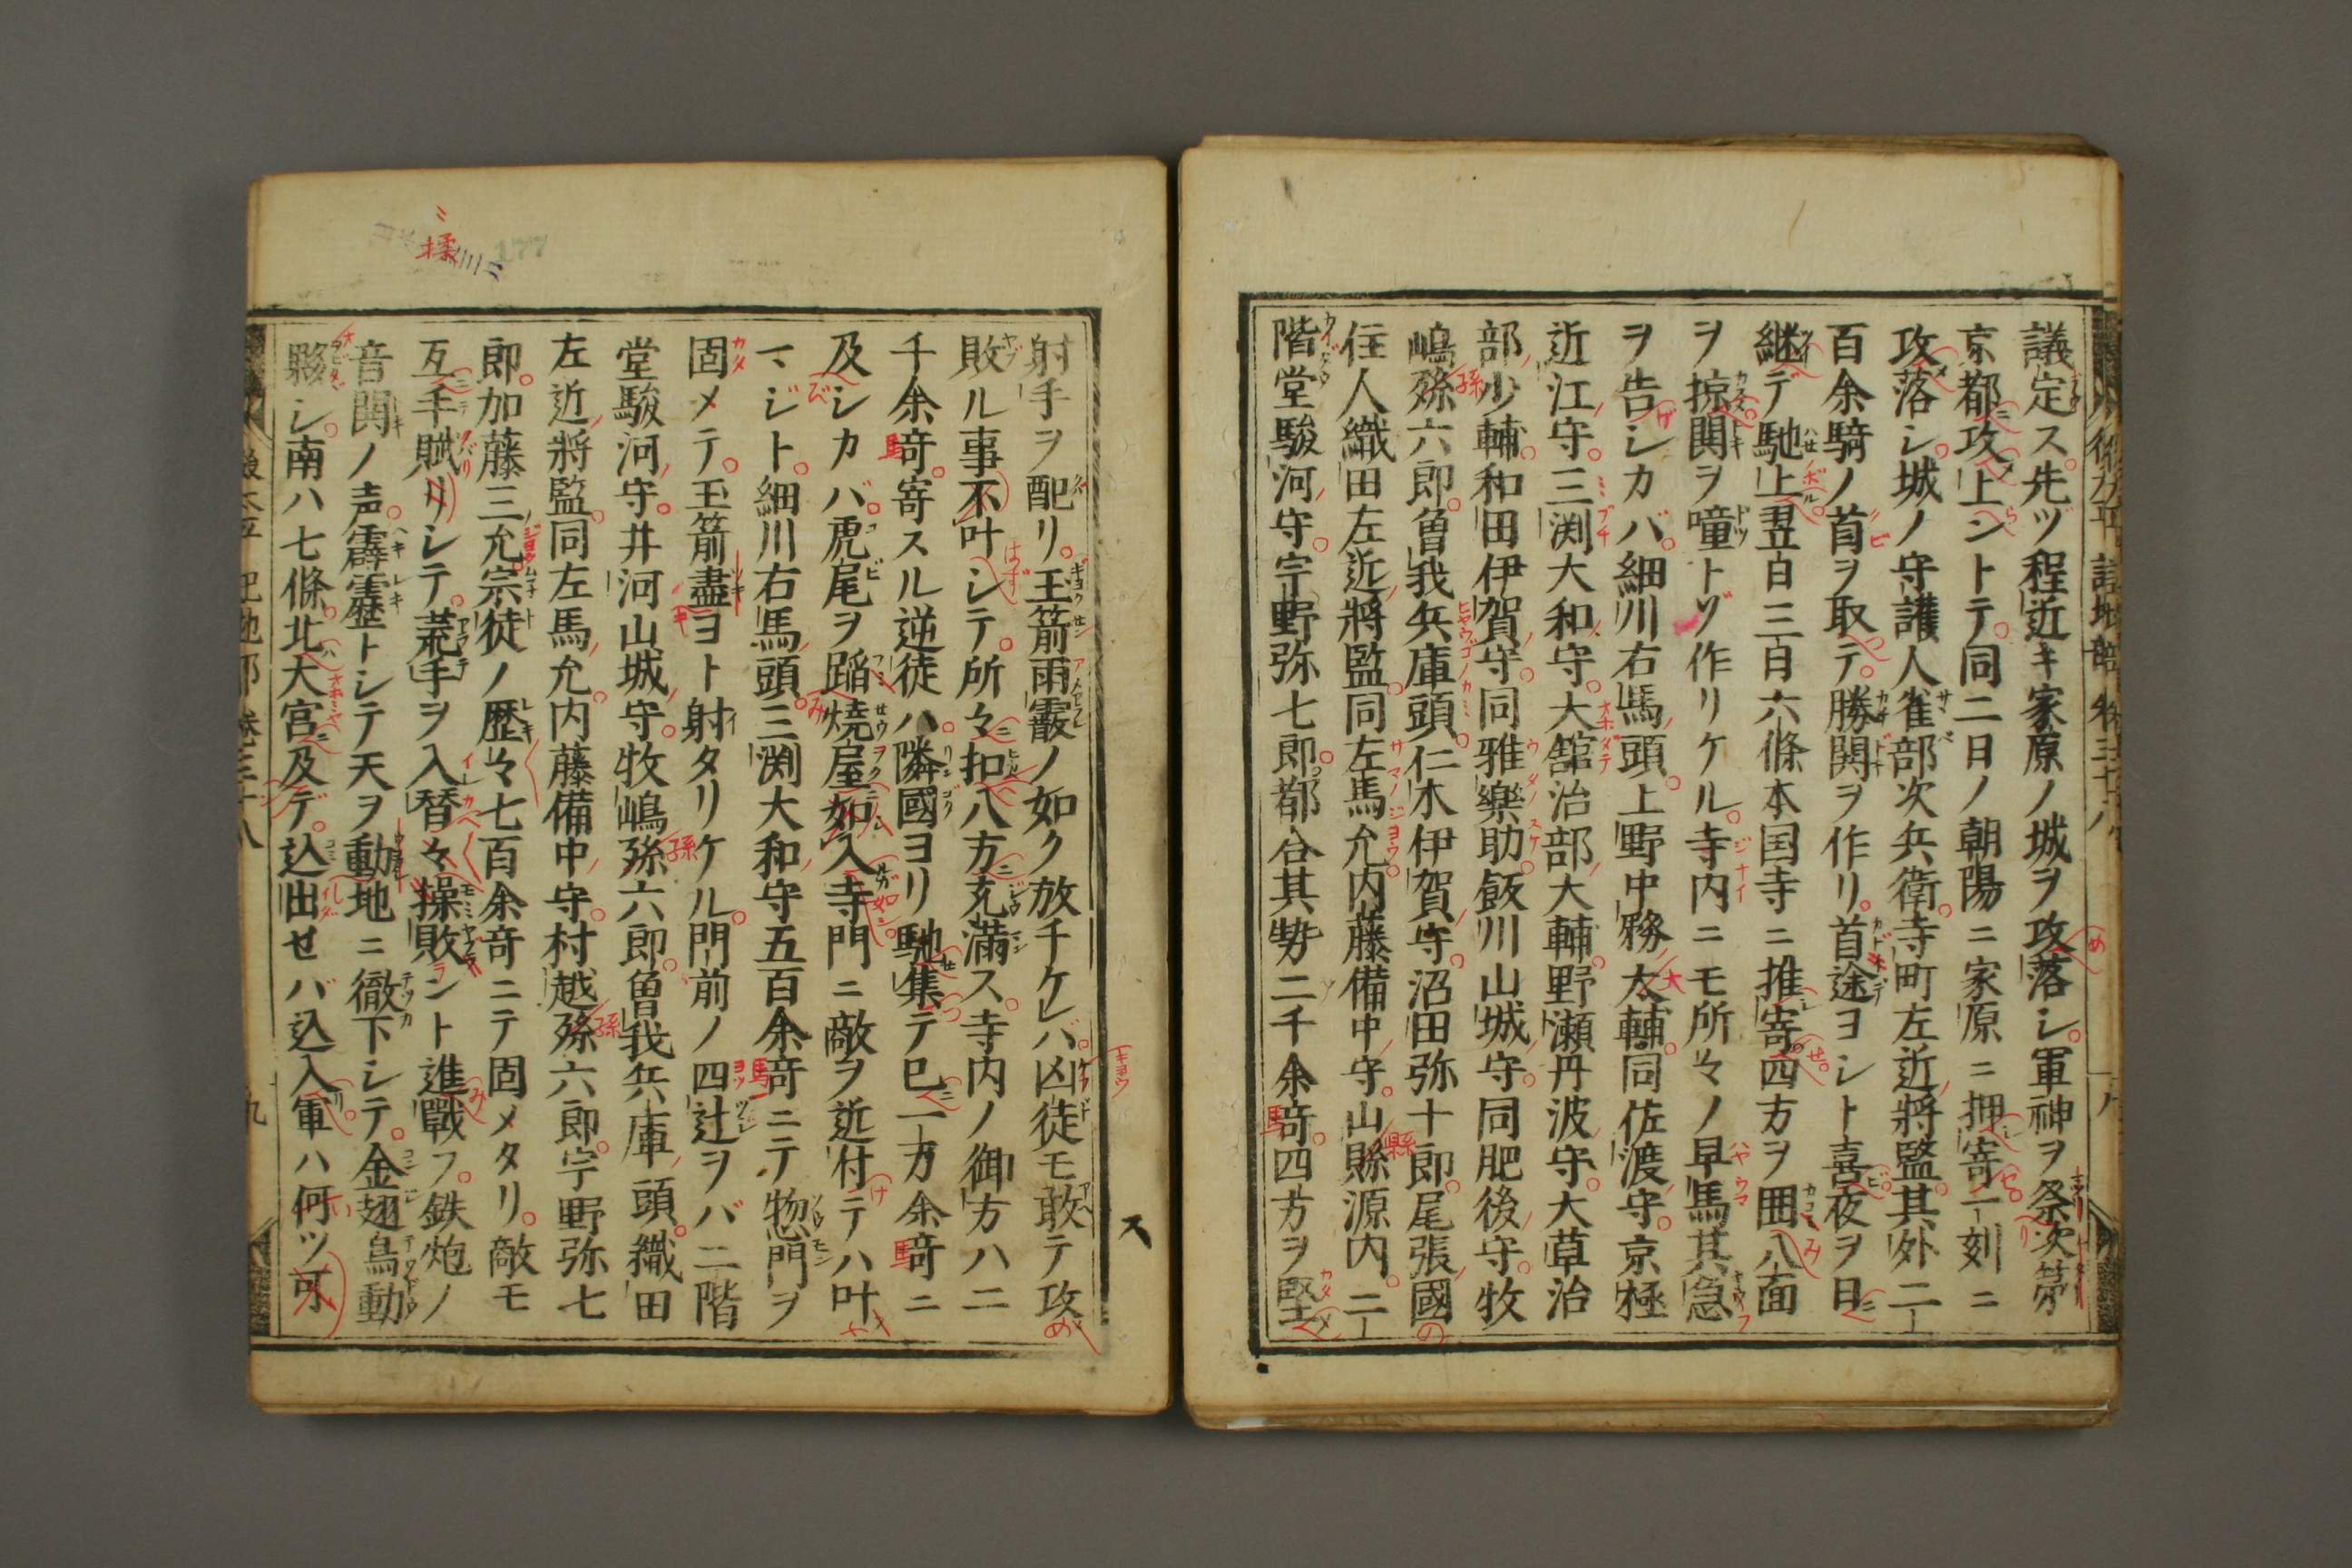 議定ス先ヅ程近キ家原ノ城ヲ攻落シ軍神ヲ祭次第
京都攻上ントテ同二日ノ朝陽ニ家原ニ押寄一刻ニ
攻落シ城ノ守護人雀部次兵衛寺町左近将監其外二
百余騎ノ首ヲ取テ勝鬨ヲ作リ首途ヨシト喜夜ヲ日
継デ馳上翌日三日六條本国寺ニ推寄四方ヲ囲八面
ヲ掠鬨ヲ噇トゾ作リケル寺内ニモ所々ノ早馬其急
ヲ告シカバ細川右馬頭上野中務太輔同佐渡守京極
近江守三渕大和守大舘治部大輔野瀬丹波守大草治
部少輔和田伊賀守同雅樂助飯川山城守同肥後守牧
嶋孫六郎曽我兵庫頭仁木伊賀守沼田弥十郎尾張國
住人織田左近将監同左馬允内藤備中守山縣源内二
階堂駿河守宇野弥七郎都合其勢二千余竒四方ヲ堅
射手ヲ配リ玉箭雨霰ノ如ク放チケレバ凶徒モ敢テ攻
敗ル事不叶シテ所々扣八方充満ス寺内ノ御方ハ二
千余竒寄スル逆徒ハ隣國ヨリ馳集テ已一万余竒ニ
及シカバ虎尾ヲ蹈焼屋如入寺門ニ敵ヲ近付テハ叶
マジト細川右馬頭三渕大和守五百余竒ニテ惣門ヲ
固メテ玉箭盡ヨト射タリケル門前ノ四辻ヲバ二階
堂駿河守井河山城守牧嶋孫六郎曽我兵庫頭織田
左近将監同左馬允内藤備中守村越孫六郎宇野弥七
郎加藤三允宗徒ノ歴々七百余竒ニテ固メタリ敵モ
互手賦リシテ荒手ヲ入替々操敗ラント進戰フ鉄炮ノ
音鬨ノ声霹靂トシテ天ヲ動地ニ徹下シテ金翅鳥動
夥シ南ハ七條北大宮及デ込出セバ込入軍ハ何ツ可